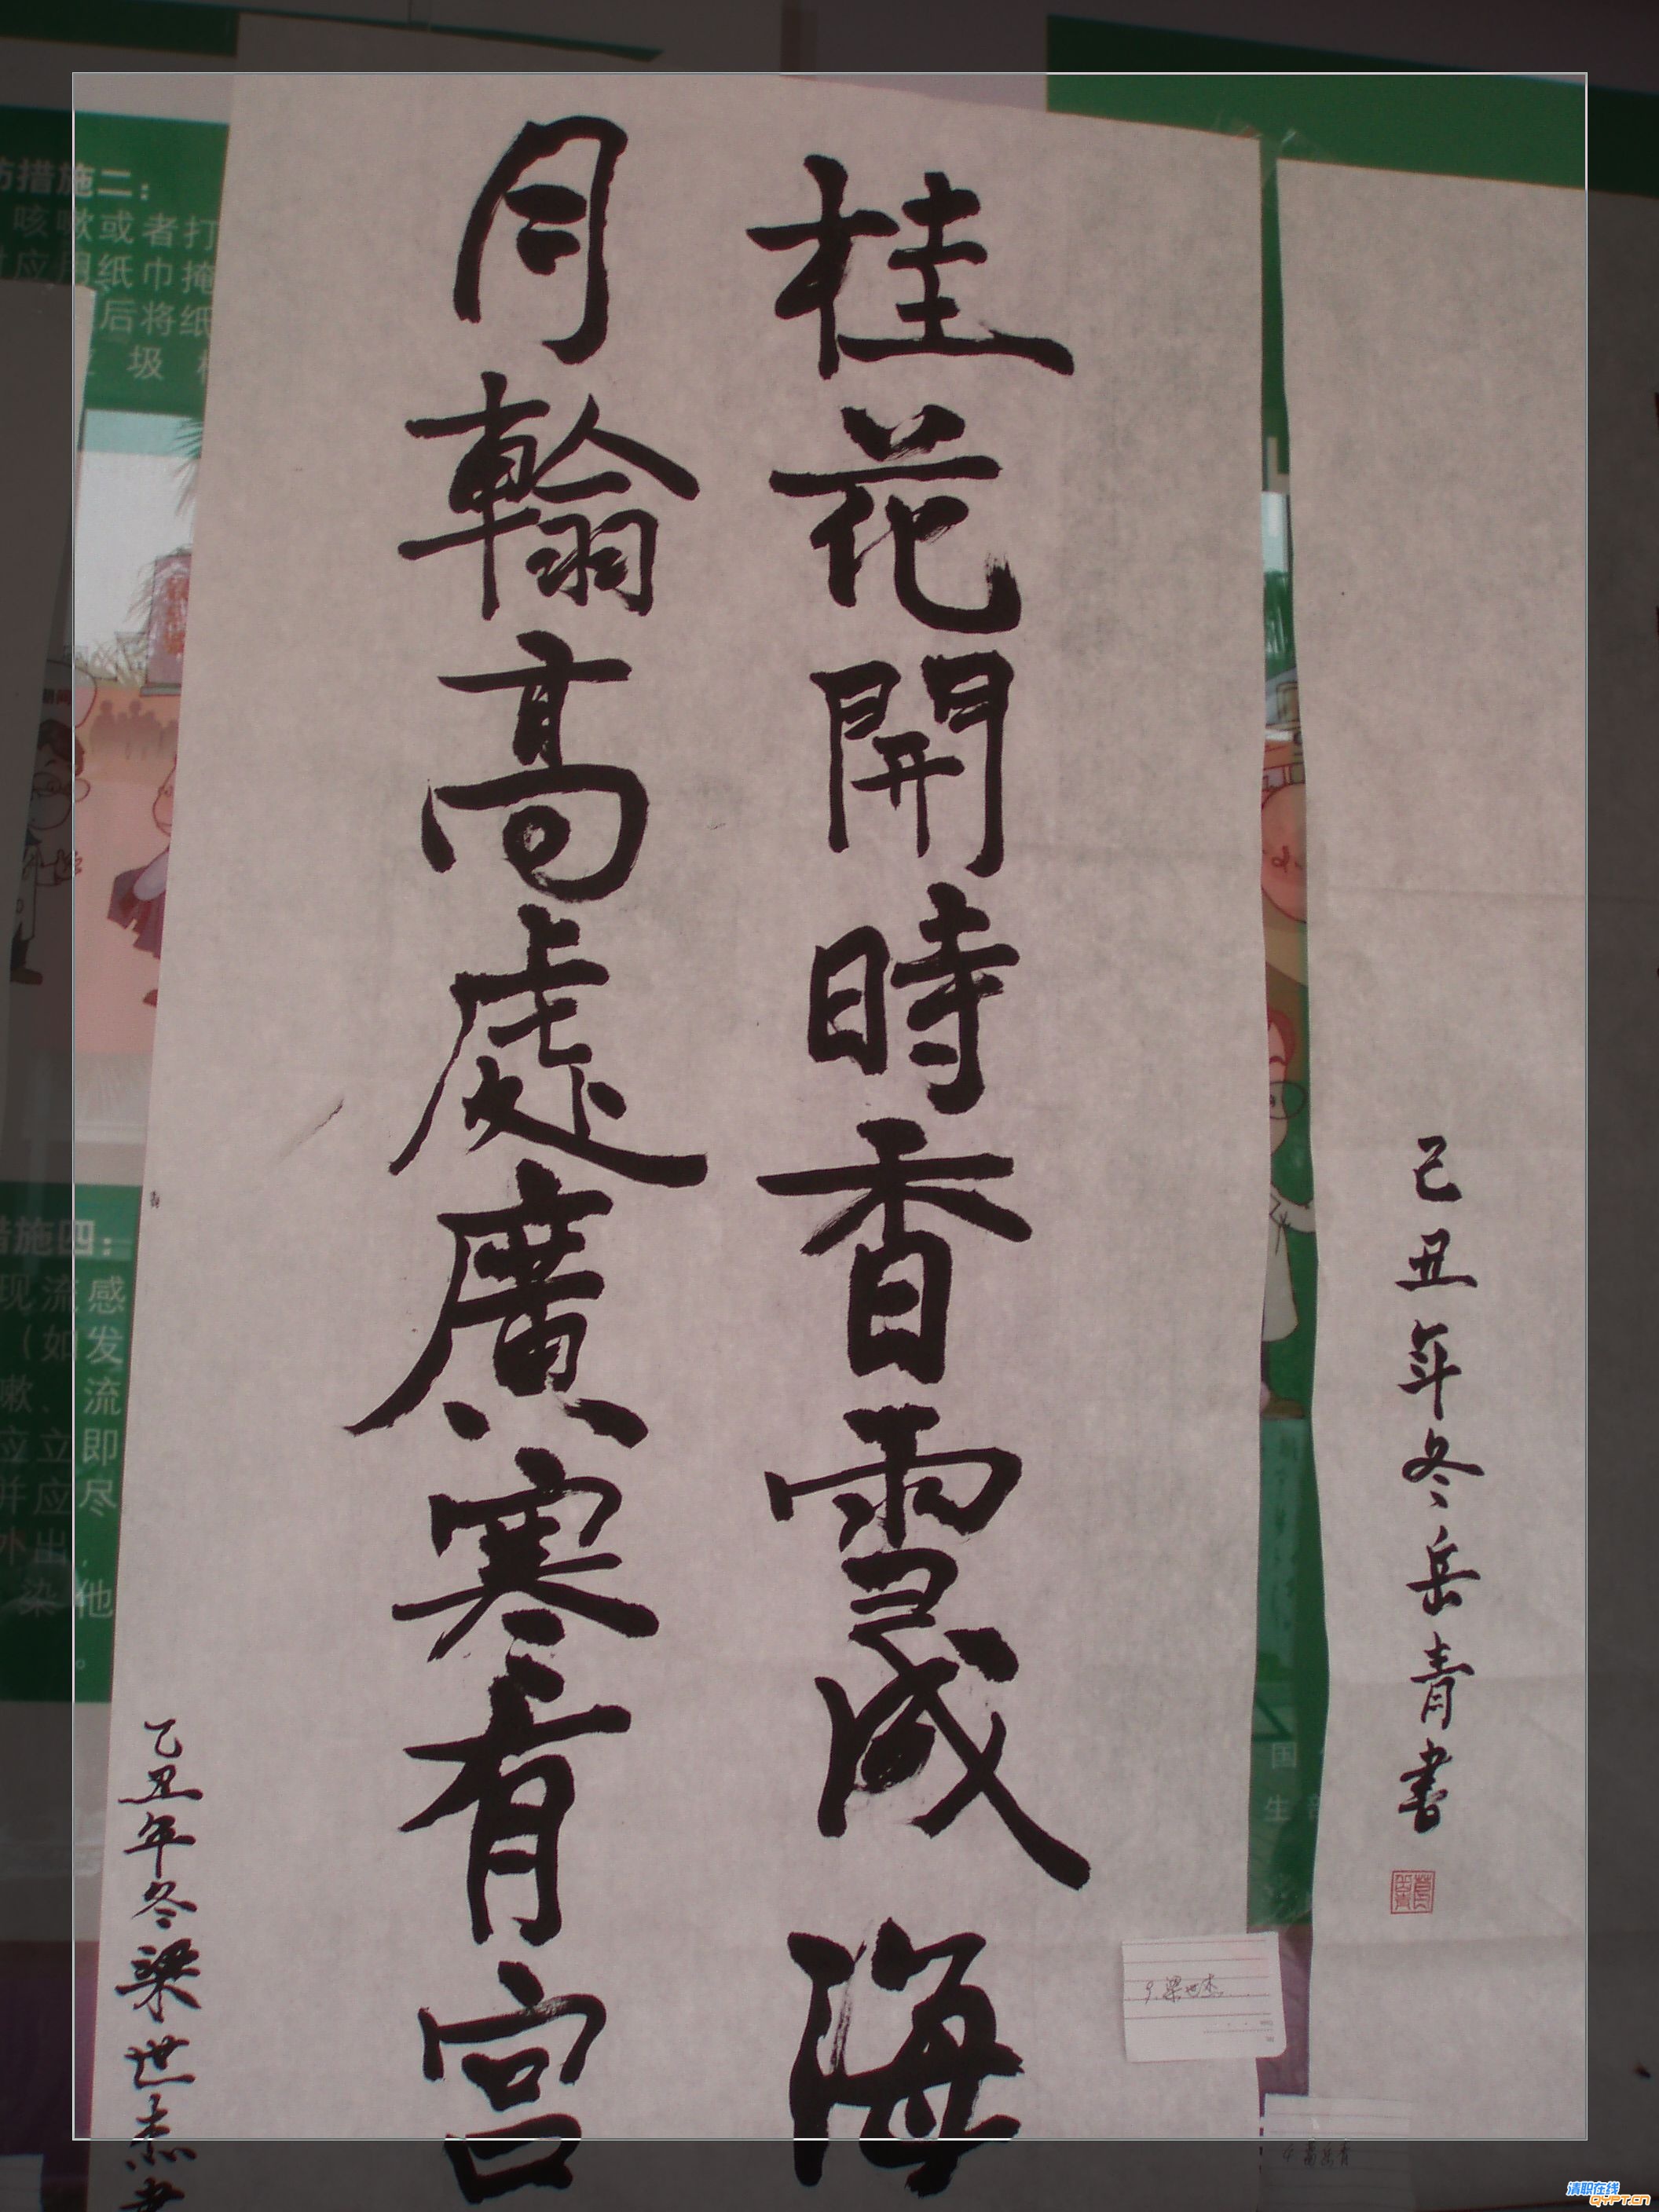 己丑年冬岳青書
桂花開時香雪成海
月翰高處廣寒有宫
乙丑年冬梁世杰書
9.梁世杰
防措施二：
咳嗽或者打
应用纸巾掩
后将纸
圾
措施四：
现流感
（如发
嗽、流
应立即
并应尽
外出，
染他
。
国
生
清职在线
QYPT.CN